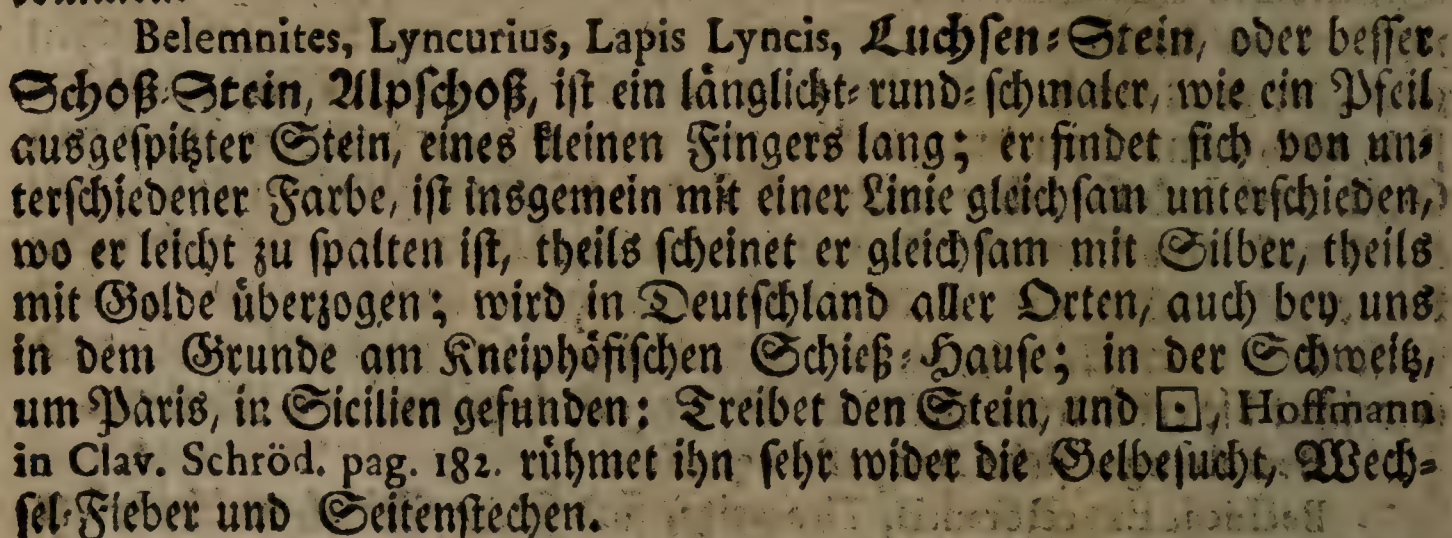 Belemnites, Lyncurius, Lapis Lyncis, Luchsen-Stein, oder besser
Schoß-Stein, Alpschoß, ist ein länglicht-rund-schmaler, wie ein Pfeil
ausgespitzter Stein, eines kleinen Fingers lang; er findet sich von un-
terschiedener Farbe, ist insgemein mit einer Linie gleichsam unterschieden,
wo er leicht zu spalten ist, theils scheinet er gleichsam mit Silber, theils
mit Golde überzogen; wird in Deutschland aller Orten, auch bey uns
in dem Grunde am Kneiphöfischen Schieß-Hause; in der Schweitz,
um Paris, in Sicilien gefunden: Treibet den Stein, und ⊡, Hoffmann
in Clav. Schröd. pag. 182. rühmet ihn sehr wider die Gelbesucht, Wech-
sel-Fieber und Seitenstechen.